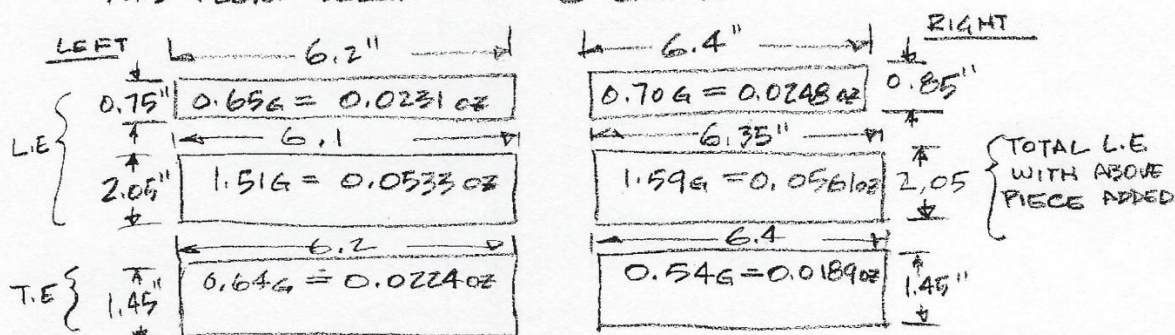 LEFT 6.2" 6.4" RIGHT
0.75" 0.65G = 0.0231 oz 0.70G = 0.0248 oz 0.85"
L.E 6.1 6.35"
2.05" 1.51G = 0.0533 oz 1.59G = 0.0561oz 2.05 TOTAL L.E
WITH ABOVE
PIECE ADDED
6.2 6.4
T.E 1.45" 0.64G = 0.0224oz 0.54G = 0.0189oz 1.45"